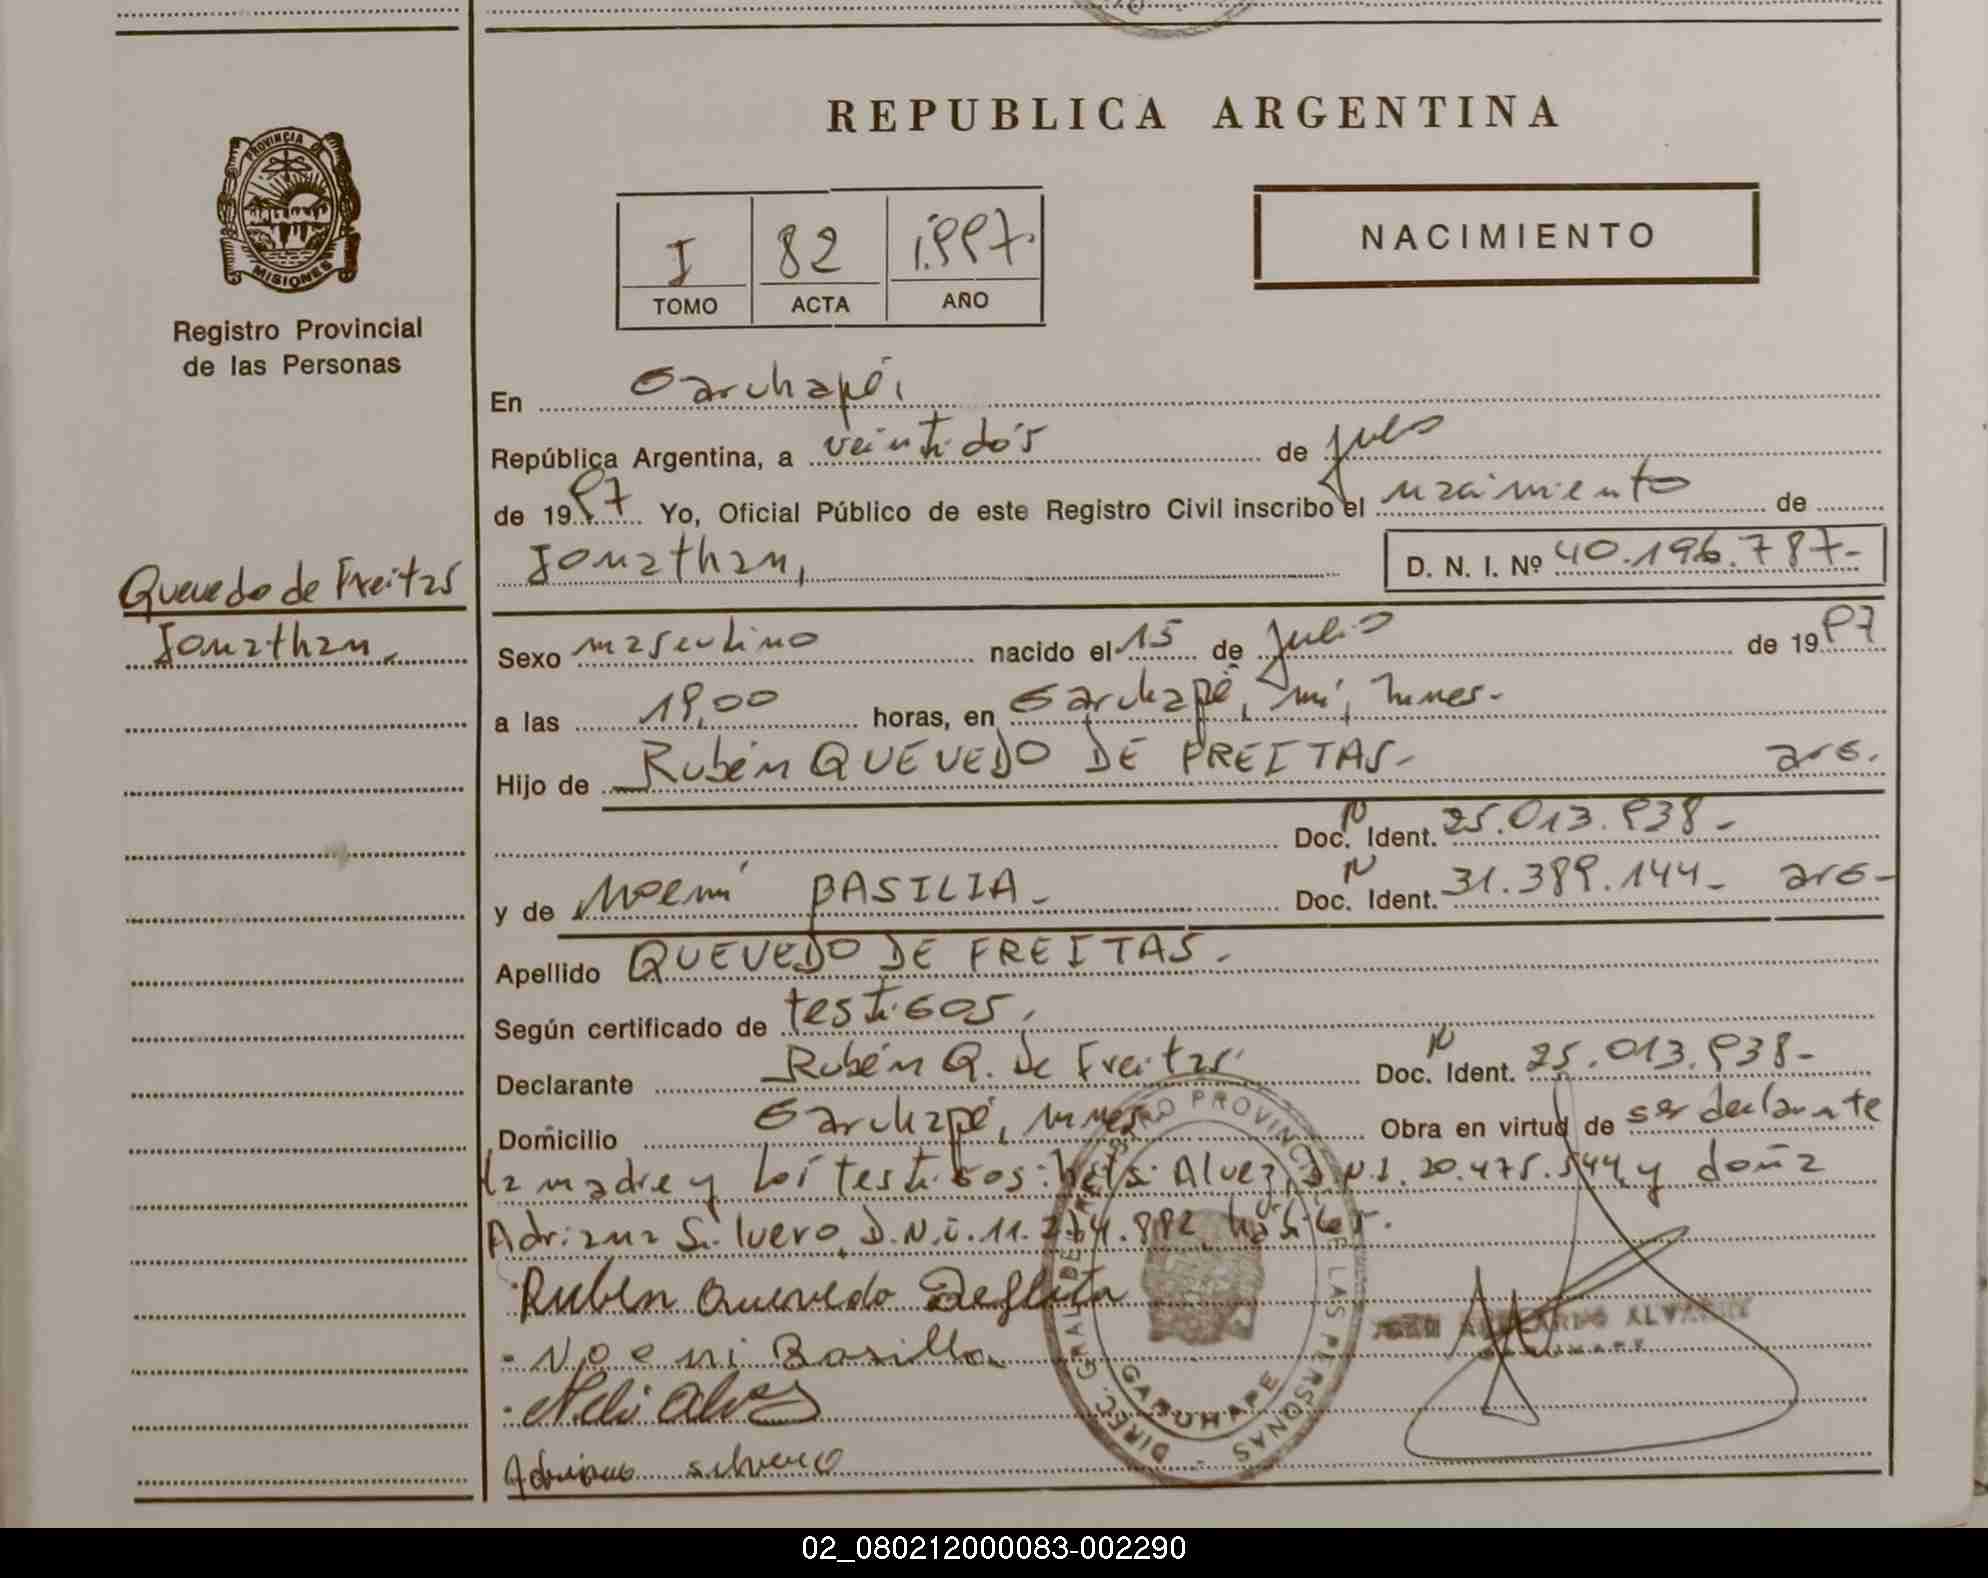 PROVINCIA DE
MISIONES
Registro Provincial
de las Personas
Quevedo de Freitas
Jonathan.
REPUBLICA ARGENTINA
I 82 1.997.
TOMO ACTA AÑO
NACIMIENTO
En Garuhapé,
República Argentina, a veintidós de julio
de 1997 Yo, Oficial Público de este Registro Civil inscribo el nacimiento de
Jonathan, D. N. I. Nº 40.196.787-
Sexo masculino nacido el 15 de julio de 1997
a las 19,00 horas, en Garuhapé, mnes.
Hijo de Rubén QUEVEDO DE FREITAS- arg.
Doc. N Ident. 25.013.938-
y de Noemí BASILIA- Doc. N Ident. 31.389.144- arg-
Apellido QUEVEDO DE FREITAS-
Según certificado de testigos,
Declarante Rubén Q. de Freitas Doc. N Ident. 25.013.938-
Domicilio Garuhapé, mnes Obra en virtud de ser declarante
la madre y los testigos: Alvez, D.N.I. 20.475.544, y doña
Adriana Silvero, D.N.I. 11. hábiles.
Ruben Quevedo Defleita
Noeni Basilla
Neli Alvez
Adriana silvero
DIREC. GRAL. DE REGISTRO PROVINCIAL DE LAS PERSONAS
GARUHAPE
02_080212000083-002290